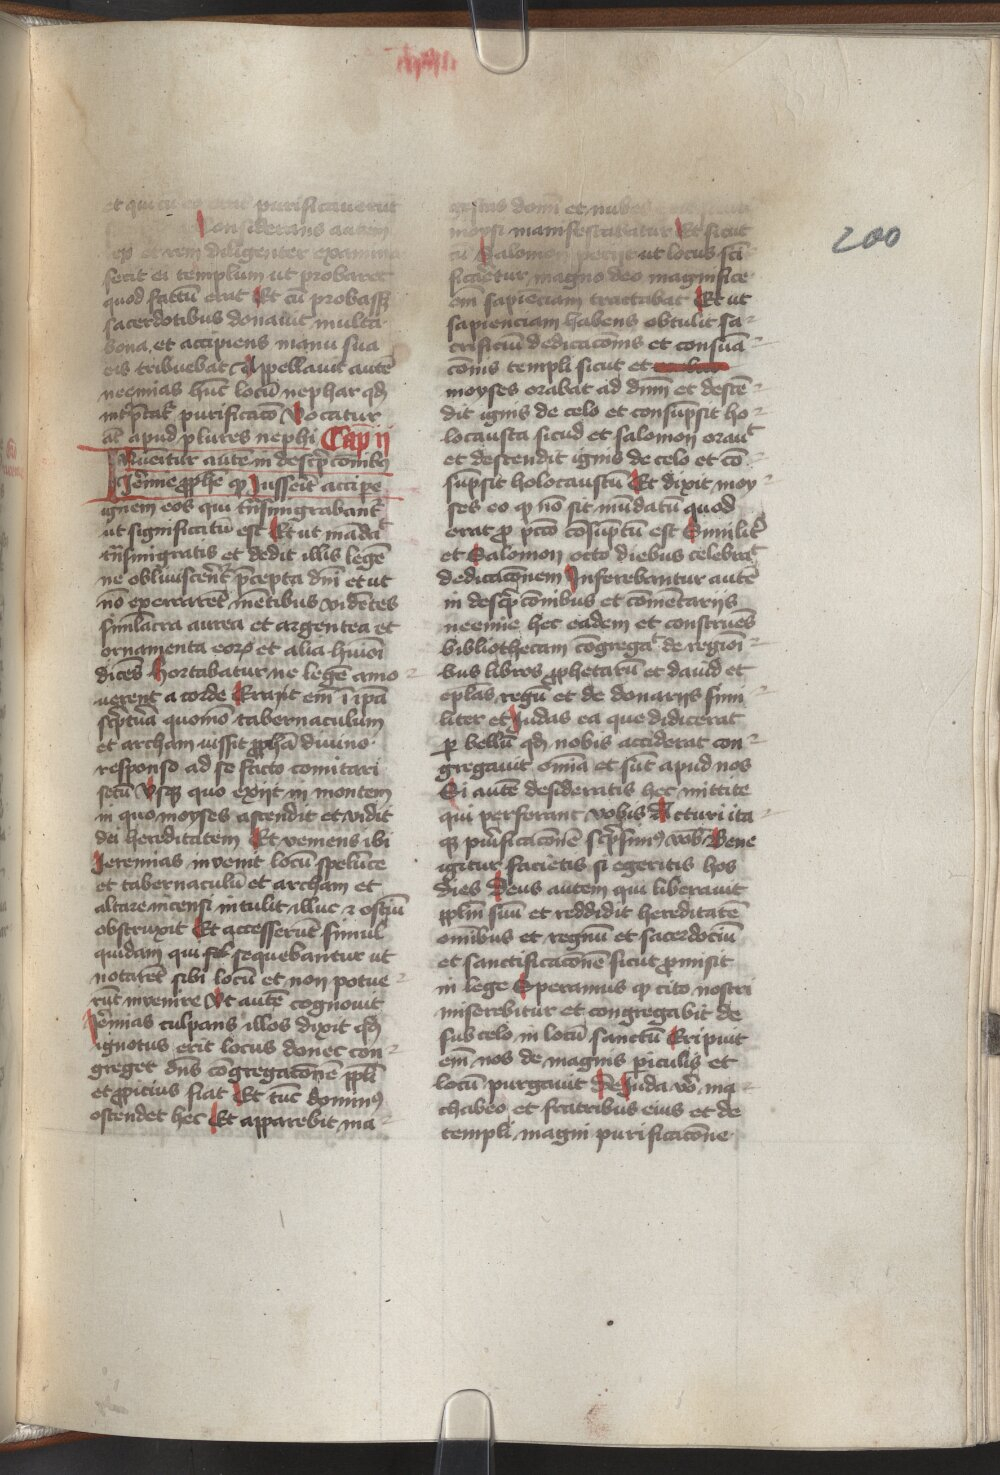 200
et qui purificauerūt
Considerans autem
rex et rem diligenter examina
fecit ei templum ut probaret
quod factū erat Et cū probassꝫ
sacerdotibus donauit multa
bona et accipiens manu sua
eis tribuebat Appellauit autē
neemias hūc locū nephar qđ
int̄p̄tat̄ purificacō Vocatur
at̄ apud plures nephi Cap ij
Inuenitur autē in descpcōnibꝫ
Jeremie ꝓphe ꝙ Jusserit accipe
ignem eos qui tͣnsmigrabant̄
ut significatū est Et ut mādat̄
tͣnsmigratis et dedit illis legē
ne obliuiscent̄ p̄cepta dn̄i et ut
nō exerrarēt mētibus vidētes
simlacra aurea et argentea et
ornamenta eoꝝ et alia hmōi
dicēs hortabatur ne legē amo
uerent a corde Erant em̄ ī ip̄a
scptura quomō tabernaculum
et archam iussit ꝓpha diuino
responso ad se facto comitari
secū Vsqꝫ quo exijt in montem
in quo moyses ascendit et vidit
dei hereditatem Et veniens ibi
Jeremias inuenit locū spelūce
et tabernaculū et archam et
altare incensi intulit illuc ⁊ ostiū
obstruxit Et accesserūt simul
quidam qui sequebantur ut
notarēt sibi locū et non potue
rūt inuenire Vt autē cognouit
Jeremias culpans illos dixit qđ
ignotus erit locus donec con
greget dn̄s cōgregacōnē ppli
et ꝓpicius fiat Et tūc dominꝰ
ostendet hec Et apparebit ma
gestas domī et nubes
moysi manifestabatur Et sicut
cū Salomon petijt ut locus scī
ficaretur magno deo magnifice
om̄ sapienciam tractabat Et ut
sapienciam habens obtulit sa
crificiū dedicacōnis et consūa
cōnis templi sicut et
moyses orabat ad dn̄m et descē
dit ignis de celo et consūpsit ho
locausta sicud et salomon orauit
et descendit ignis de celo et cō
sūpsit holocaustū Et dixit moy
ses eo ꝙ nō sit mādatū quod
erat ꝓ pccō cōsūptū est Similit̄
et Salomon octo diebus celebrat̄
dedicacōnem Inferebantur autē
in descpcōnibus et cōmētarijs
neemie hec eadem et construēs
bibliothecam cōgregat̄ de regiōi
bus libros ꝓphetarū et dauid et
eplas regū et de donarijs simi
liter et Judas ea que didicerat
ꝑ bellū qđ nobis acciderat con
gregauit omīa et sūt apud nos
Si autē desideratis hec mittite
qui perferant vobis Acturi ita
qꝫ purificacōnē scpsimꝰ vob Bene
igitur facietis si egeritis hos
dies Deus autem qui liberauit
pplm suū et reddidit hereditatē
omibus et regnū et sacerdociū
et sanctificacōnē sicut ꝓmisit
in lege Speramus ꝙ cito nostri
miserebitur et congregabit de
sub celo in locū sanctū Eripuit
em̄ nos de magnis piculis et
locū purgauit De Juda vō ma
chabeo et fratribus eius et de
templi magni purificacōne